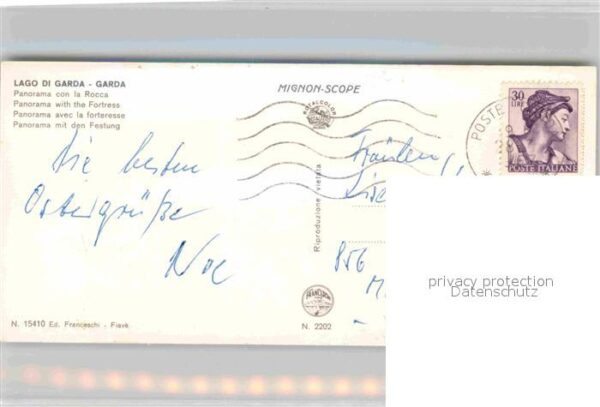 LAGO DI GARDA - GARDA
Panorama con la Rocca
Panorama with the Fortress
Panorama avec la forteresse
Panorama mit den Festung
MIGNON-SCOPE
30
LIRE
POSTE ITALIANE
POSTE
Die besten
Ostergrüße
Fräulein
856
M
Riproduzione vietata
privacy protection
Datenschutz
N. 15410 Ed. Franceschi - Fiavè
N. 2202